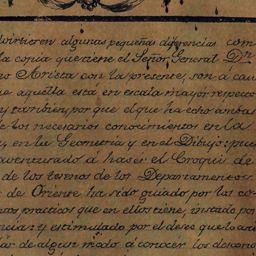 dvirtieren algunas pequeñas diferencias com
la copia que tiene el Señor General Dn
o Arista con la presente, son a cau
e aquella esta en escala mayor respecto
y tambien, por que el que ha echo ambas
e los necesarios conocimientos en la
y en la Geometria y en el Dibujo; pues
aventurado à haser el Croquis de
de los terenos de los Departamentos
de Oriente ha sido guiado por los co-
tos practicos que en ellos tiene, instado por
ncias; y estimulado por el deseo que lo ani
ar de algun modo à conocer los descono